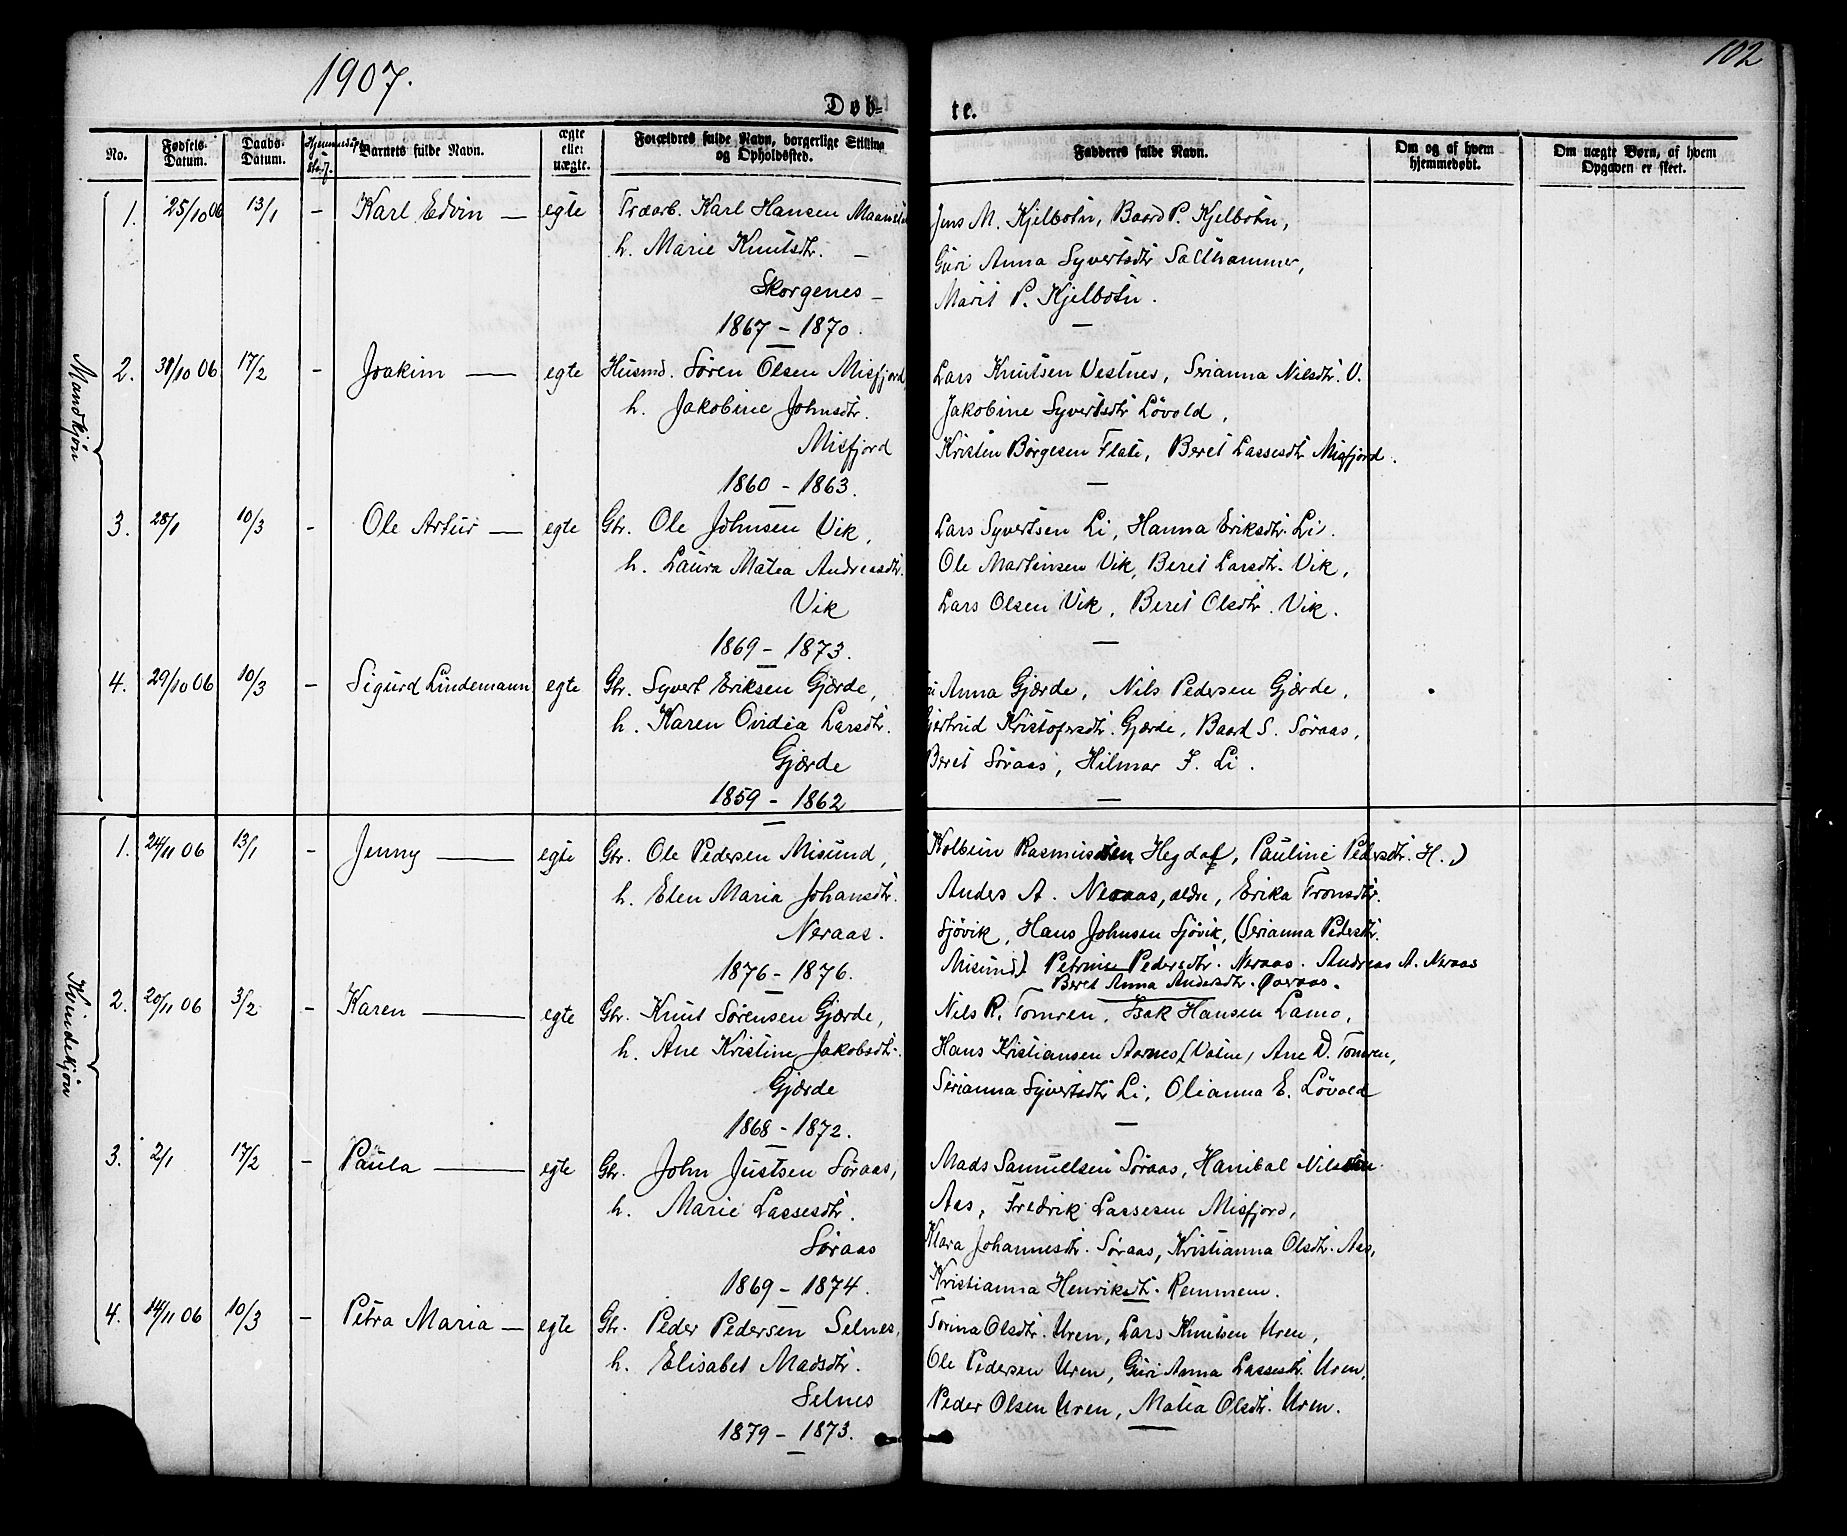 1907.
102
Døb-
te.
No.
Fødsels-Datum.
Daabs-Datum.
Barnets fulde Navn.
ægte eller uægte.
Forældres fulde Navn, borgerlige Stilling og Opholdssted.
Fadderes fulde Navn.
Om og af hvem hjemmedøbt.
Om uægte Børn, af hvem Opgaven er skeet.
Mandkjøn
1. 25/10 06 13/1 – Karl Edvin — egte Træarb. Karl Hansen
h. Marie Knutsdtr. –
Skorgenes –
1867 – 1870.
Jens M. Kjelbotn, Baard P. Kjelbotn,
Guri Anna Syvertsdtr Salthammer,
Marit P. Kjelbotn.
2. 31/10 06 17/2 – Joakim — egte Husmd. Søren Olsen Misfjord
h. Jakobine Johnsdtr.
Misfjord
1860 – 1863.
Lars Knutsen Vestnes, Serianna Nilsdtr. V.
Jakobine Syvertsdtr Løvold,
Kristen Børgesen Flate, Beret Lassesdtr Misfjord.
3. 28/1 10/3 – Ole Artur — egte Gbr. Ole Johnsen Vik,
h. Laura Matea Andreasdtr.
Vik
1869 – 1873.
Lars Syvertsen Li, Hanna Eriksdtr. Li.
Ole Martinsen Vik, Beret Larsdtr. Vik,
Lars Olsen Vik, Beret Olsdtr. Vik.
4. 29/10 06 10/3 – Sigurd Lindemann egte Gbr. Syvert Eriksen Gjærde,
h. Karen Ovidia Larsdtr.
Gjærde
1859 – 1862
Anna Gjærde, Nils Pedersen Gjærde,
Gjertrud Kristofersdtr. Gjærde, Baard S. Søraas,
Beret Søraas, Hilmar F. Li.
Kvindekjøn
1. 24/11 06 13/1 – Jenny — egte Gbr. Ole Pedersen Misund,
h. Elen Maria Johansdtr.
Neraas.
1876 – 1876.
Kolbein Rasmussen Hegdal, Pauline Pedersdtr. H.,
Anders A. Neraas, ældre, Erika Tronsdtr.
Sjøvik, Hans Johnsen Sjøvik, (Serianna Pedersdtr.
Misund) Petrine Pedersdtr. Neraas. Andreas A. Neraas
Beret Anna Andersdtr. Øveraas.
2. 20/11 06 3/2 – Karen — egte Gbr. Knut Sørensen Gjærde,
h. Ane Kristine Jakobsdtr.
Gjærde
1868 – 1872.
Nils R. Tomren, Isak Hansen Lamo,
Hans Kristiansen Aarnes (Vatne) Ane D. Tomren,
Serianna Syvertsdtr Li, Olianna E. Løvold
3. 2/1 17/2 – Paula — egte Gbr. John Justsen Søraas,
h. Marie Lassesdtr.
Søraas
1869 – 1874.
Mads Samuelsen Søraas, Hanibal Nilssen
Aas, Fredrik Lassesen Misfjord,
Klara Johannesdtr. Søraas, Kristianna Olsdtr. Aas,
Kristianna Henriksdtr. Remmem.
4. 14/11 06 10/3 – Petra Maria — egte Gbr. Peder Pedersen Selnes,
h. Elisabet Madsdtr.
Selnes
1879 – 1873.
Torina Olsdtr. Uren, Lars Knutsen Uren,
Ole Pedersen Uren, Guri Anna Lassesdtr. Uren,
Peder Olsen Uren, Matea Olsdtr. Uren.